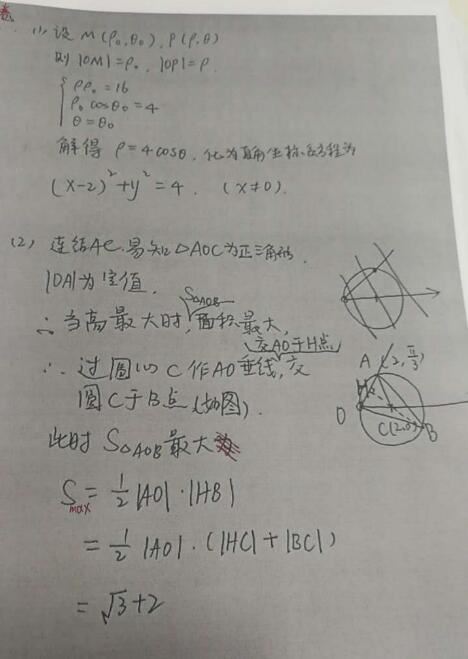 卷
(1) 设 M(ρ₀,θ₀), P(ρ,θ)
则 |OM|=ρ₀, |OP|=ρ.
{ρρ₀=16
ρ₀cosθ₀=4
θ=θ₀
解得 ρ=4cosθ, 化为直角坐标系方程为
(x-2)²+y²=4. (x≠0).
(2) 连结AC, 易知△AOC为正三角形.
|OA|为定值.
S△AOB
∴当高最大时, 面积最大,
交AO于H点
∴过圆心C作AO垂线, 交
圆C于B点 (如图).
此时 S△AOB最大
Smax=½|AO|·|HB|
=½|AO|·(|HC|+|BC|)
=√3+2
A(2, π/3)
H
O
C(2,0)
B